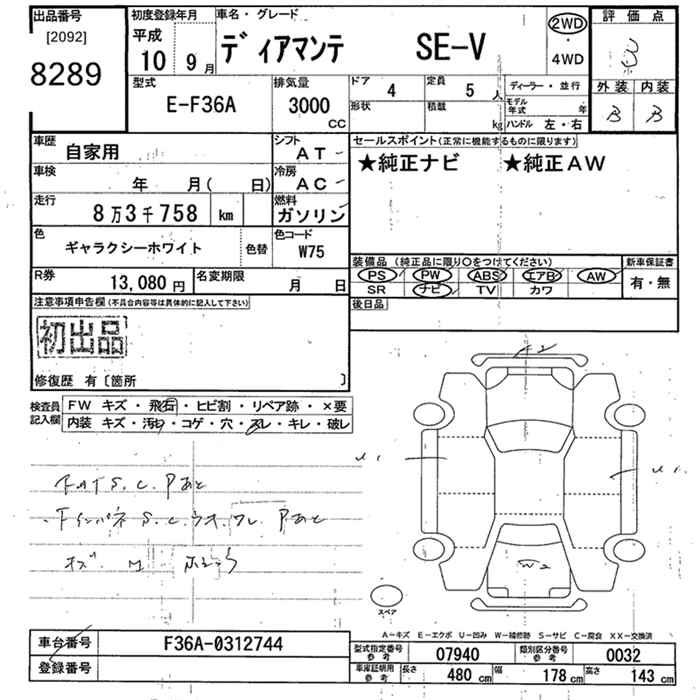 出品番号 初度登録年月 車名・グレード 評価点
[2092] 平成 ディアマンテ SE-V 2WD 3
8289 10 9月 ・ 4WD
型式 排気量 ドア 4 定員 5人 ディーラー・並行 外装 内装
E-F36A 3000 CC 形状 積載 kg モデル年式 年 B B
ハンドル 左・右
車歴 自家用 シフト AT セールスポイント(正常に機能するものに限ります)
車検 年 月( 日) 冷房 AC ★純正ナビ ★純正AW
走行 8万3千758 km 燃料 ガソリン
色 ギャラクシーホワイト 色替 色コード W75
装備品(純正品に限り○をつけてください) 新車保証書
R券 13,080円 名変期限 月 日 PS PW ABS エアB AW 有・無
SR ナビ TV カワ
注意事項申告欄(不具合内容等は具体的に記入して下さい) 後日品
初出品
修復歴 有〔箇所 〕
検査員記入欄 FW キズ・飛石・ヒビ割・リペア跡・×要
内装 キズ・汚れ・コゲ・穴・スレ・キレ・破レ
W2
スペア
A−キズ E−エクボ U−凹み W−補修跡 S−サビ C−腐食 XX−交換済
車台番号 F36A-0312744 型式指定番号 参考 07940 類別区分番号 参考 0032
登録番号 車庫証明用 参考 長さ 480 cm 幅 178 cm 高さ 143 cm